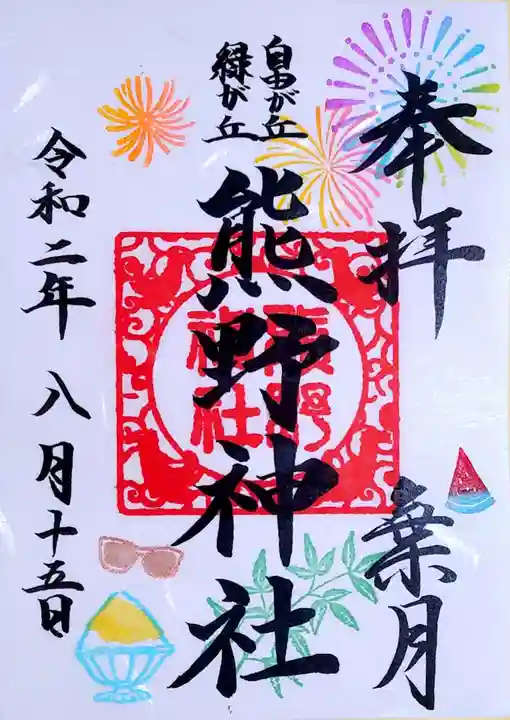 奉拝
葉月
自由が丘
緑が丘
熊野神社
熊野
神社
令和二年 八月十五日